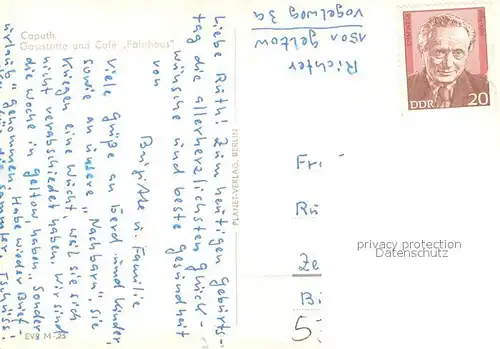 Caputh
Gaststätte und Café „Fährhaus"
Liebe Ruth! Zum heutigen Geburts-
tag die allerherzlichsten Glück-
wünsche und beste Gesundheit
von
Brigitte u. Familie
Viele Grüße an Gerd und Kinder,
sowie an unsere „Nachbarn", sie
kriegen eine Wucht, weil sie sich
nicht verabschiedet haben. Wir sind
die Woche in Geltow, haben „Sonder-
urlaub" genommen. Habe wieder Brief-
für die Sammler. Tschüss!
EVB M-25
PLANET-VERLAG, BERLIN
Richter
1501 Geltow
Vogelweg 3a
DDR 20
Fr
Rü
Ze
B
5
privacy protection
Datenschutz